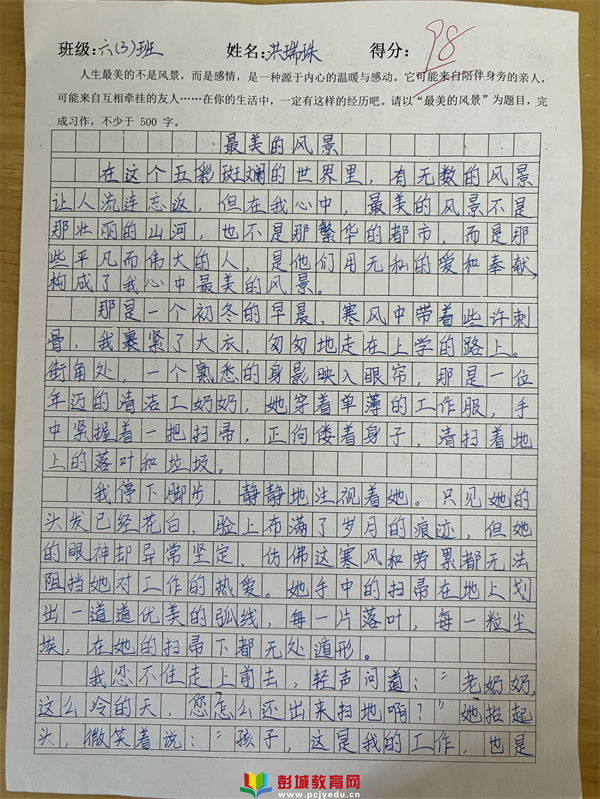 班级:六(3)班 姓名:洪瑞珠 得分: 98
人生最美的不是风景，而是感情，是一种源于内心的温暖与感动。它可能来自陪伴身旁的亲人，
可能来自互相牵挂的友人……在你的生活中，一定有这样的经历吧。请以“最美的风景”为题目，完
成习作，不少于 500 字。
最美的风景
在这个五彩斑斓的世界里，有无数的风景
让人流连忘返，但在我心中，最美的风景不是
那壮丽的山河，也不是那繁华的都市，而是那
些平凡而伟大的人，是他们用无私的爱和奉献，
构成了我心中最美的风景。
那是一个初冬的早晨，寒风中带着些许刺
骨，我裹紧了大衣，匆匆地走在上学的路上。
街角处，一个熟悉的身影映入眼帘，那是一位
年迈的清洁工奶奶，她穿着单薄的工作服，手
中紧握着一把扫帚，正佝偻着身子，清扫着地
上的落叶和垃圾。
我停下脚步，静静地注视着她。只见她的
头发已经花白，脸上布满了岁月的痕迹，但她
的眼神却异常坚定，仿佛这寒风和劳累都无法
阻挡她对工作的热爱。她手中的扫帚在地上划
出一道道优美的弧线，每一片落叶，每一粒尘
埃，在她的扫帚下都无处遁形。
我忍不住走上前去，轻声问道：“老奶奶，
这么冷的天，您怎么还出来扫地啊？”她抬起
头，微笑着说：“孩子，这是我的工作，也是
彭城教育网
www.pcjyedu.cn